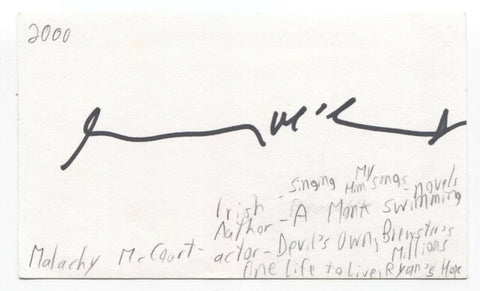 2000
Singing My Him Songs - novels
Irish
Author - A Monk Swimming
Malachy McCourt - actor - Devil's Own, Brewster's Millions
One Life to Live, Ryan's Hope